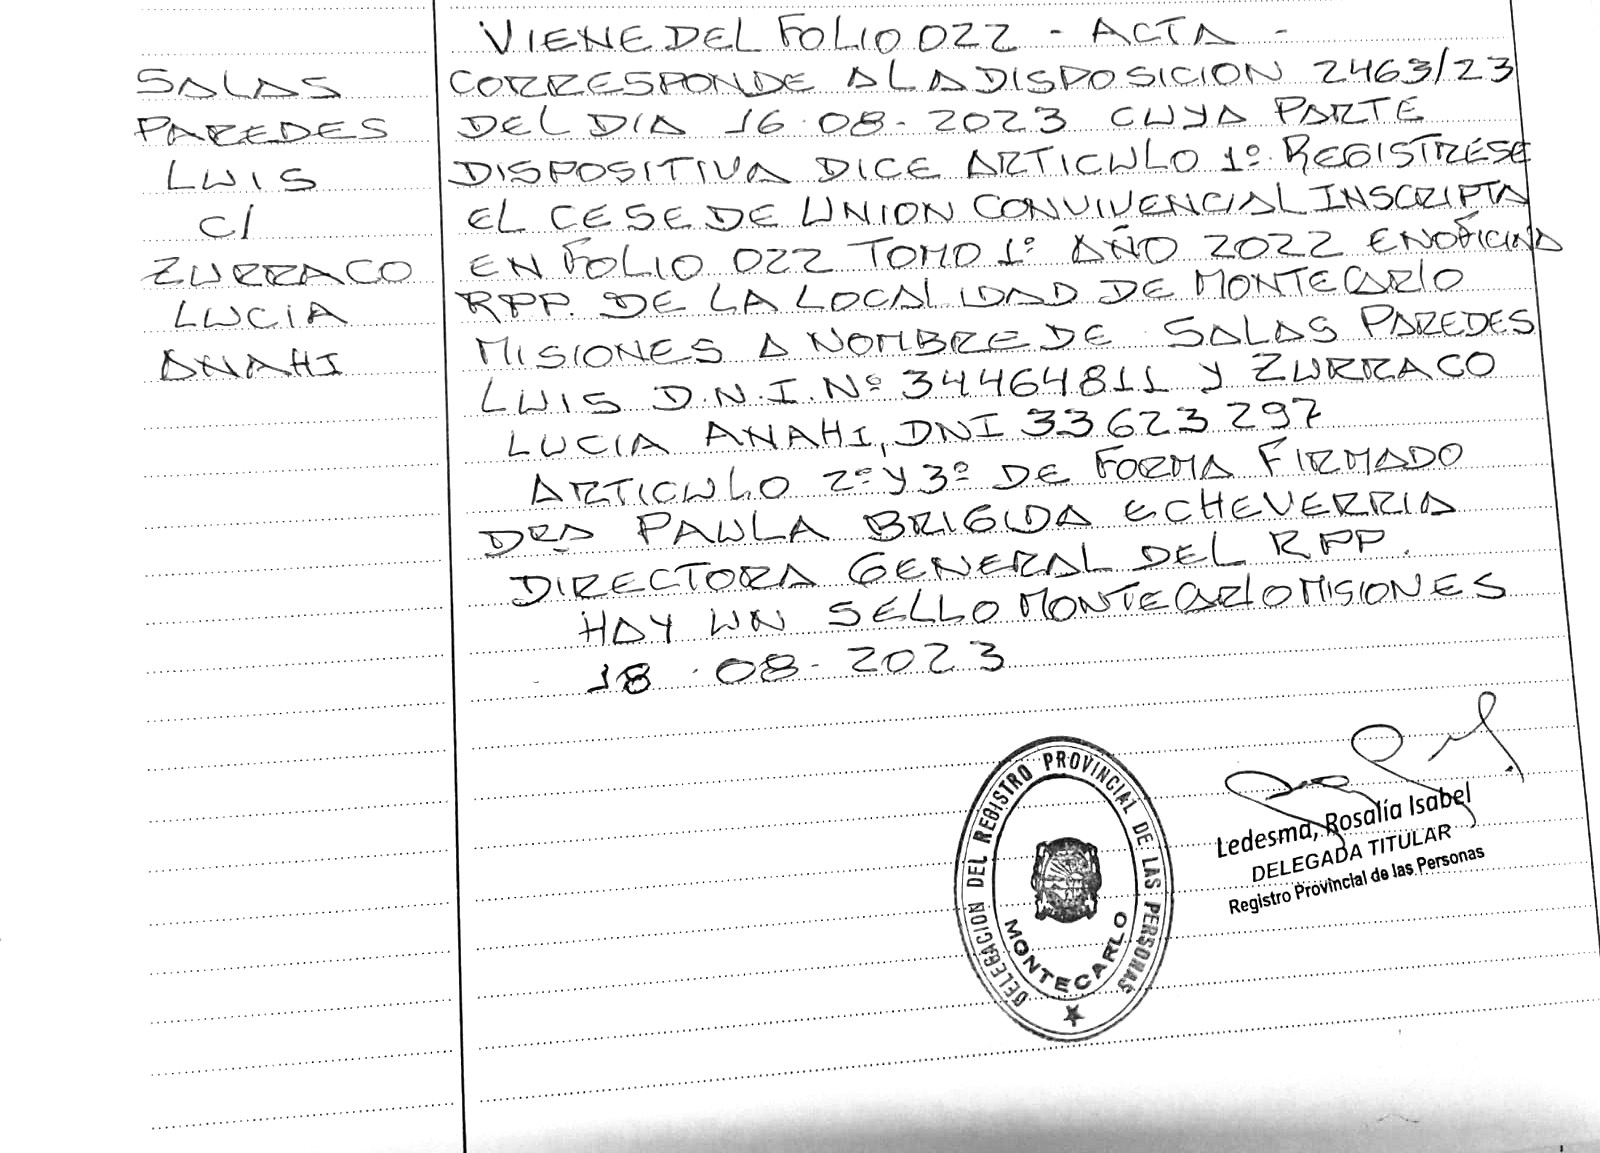 VIENE DEL FOLIO 022 - ACTA -
SALAS
PAREDES
LUIS
C/
ZURRACO
LUCIA
ANAHI
CORRESPONDE A LA DISPOSICION 2463/23
DEL DIA 16.08.2023 CUYA PARTE
DISPOSITIVA DICE ARTICULO 1º. REGISTRESE
EL CESE DE UNION CONVIVENCIAL INSCRIPTA
EN FOLIO 022 TOMO 1º AÑO 2022 EN OFICINA
RPP. DE LA LOCALIDAD DE MONTECARLO
MISIONES A NOMBRE DE SALAS PAREDES
LUIS D.N.I. Nº 34464811 Y ZURRACO
LUCIA ANAHI, DNI 33623297
ARTICULO 2º Y 3º DE FORMA FIRMADO
DRA PAULA BRIGIDA ECHEVERRIA
DIRECTORA GENERAL DEL RPP.
HAY UN SELLO MONTECARLO MISIONES
18.08.2023
DELEGACION DEL REGISTRO PROVINCIAL DE LAS PERSONAS
MONTECARLO
Ledesma, Rosalía Isabel
DELEGADA TITULAR
Registro Provincial de las Personas